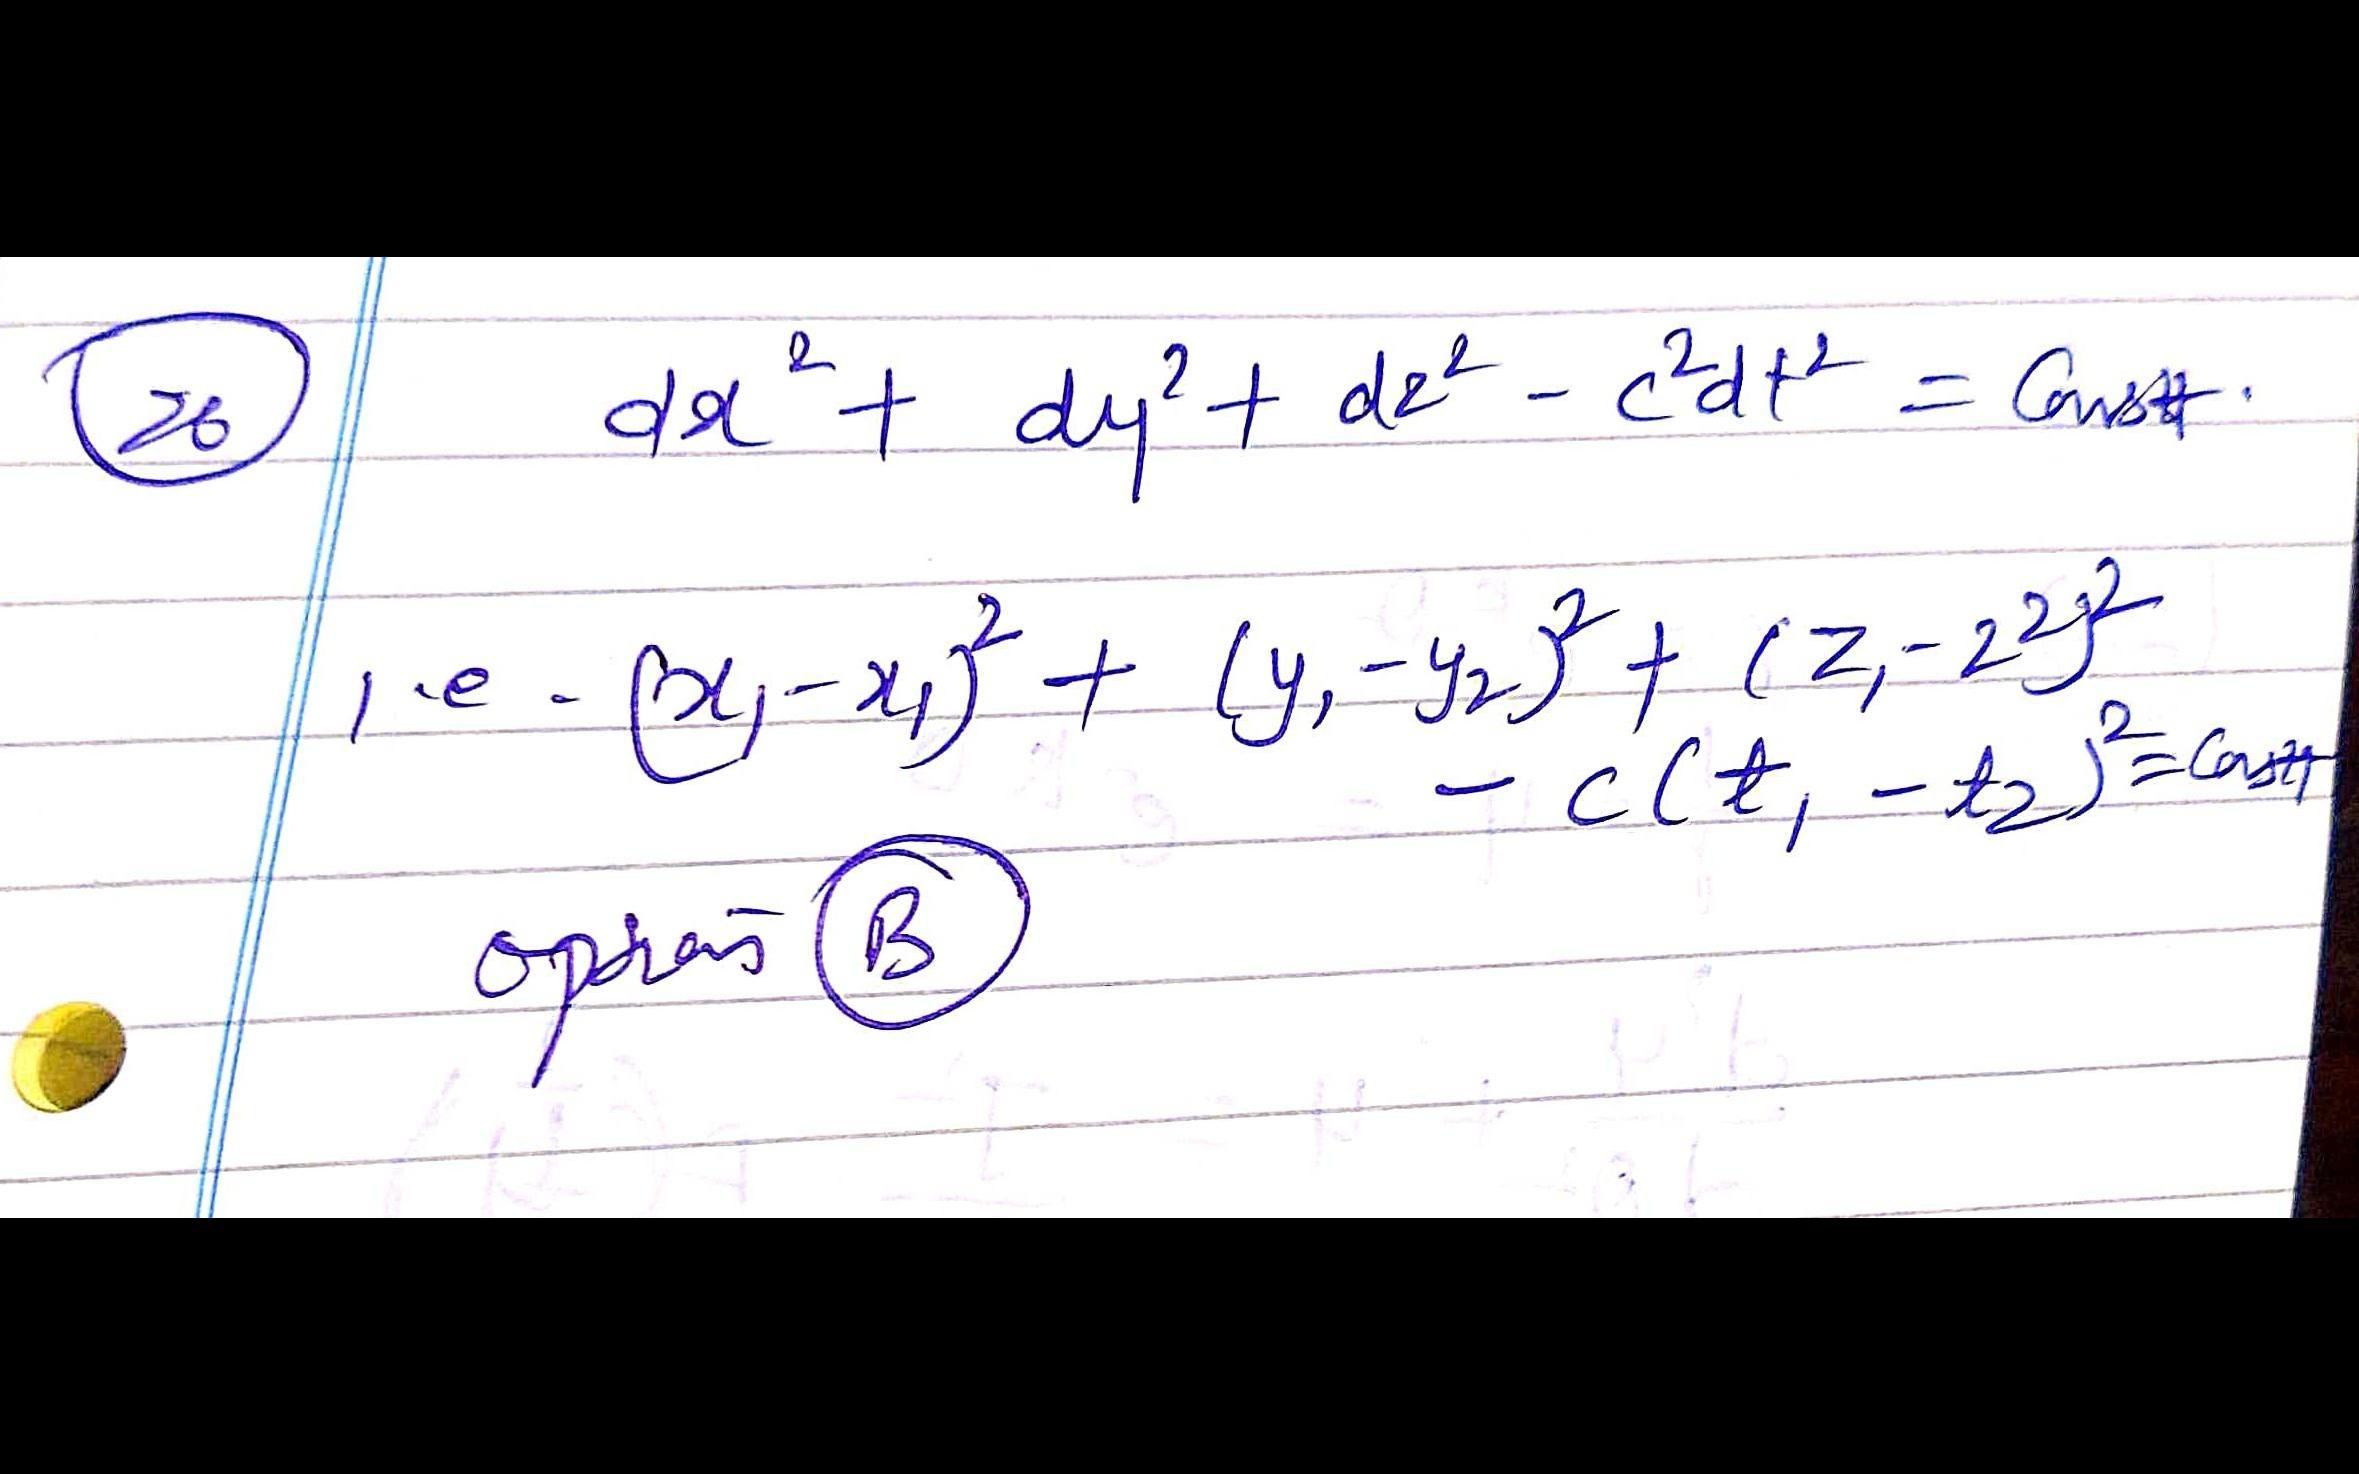 26 dx² + dy² + dz² - c²dt² = Constt.
i.e. (x₁-x₁)² + (y₁-y₂)² + (z₁-z²)²
- c(t₁ - t₂)² = Constt
option B